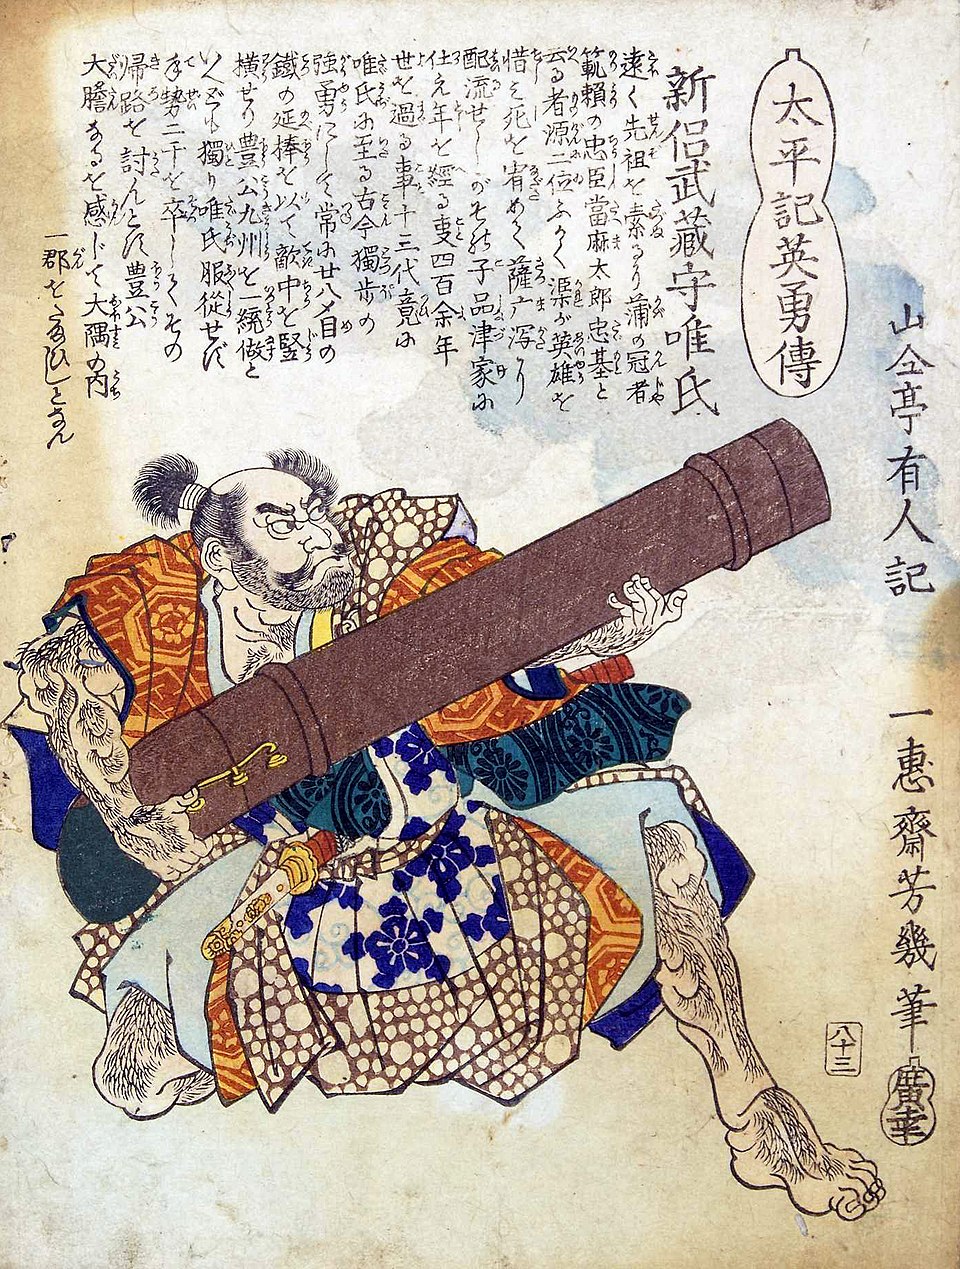 太平記英勇傳
山仝亭有人記
一惠齋芳幾筆
廣重
八十三
新侶武藏守唯氏
遠く先祖を索るり蒲の冠者
範頼の忠臣當麻太郎忠基と
云る者源二位ふかく渠が英雄を
惜み死を宥めく薩广泻り
配流せしが其子品津家ゆ
仕え年を經る叓四百余年
世を過る事十三代竟ゆ
唯氏ゆ至る古今獨歩の
強勇にして常ゆ廿八〆目の
鐵の延棒を以て敵中を竪
横せり豊公九州を一統做と
いへども獨り唯氏服從せだ
手勢二千を卒して其の
帰路を討んとす豊公
大膽なるを感じて大隅の内
一郡を